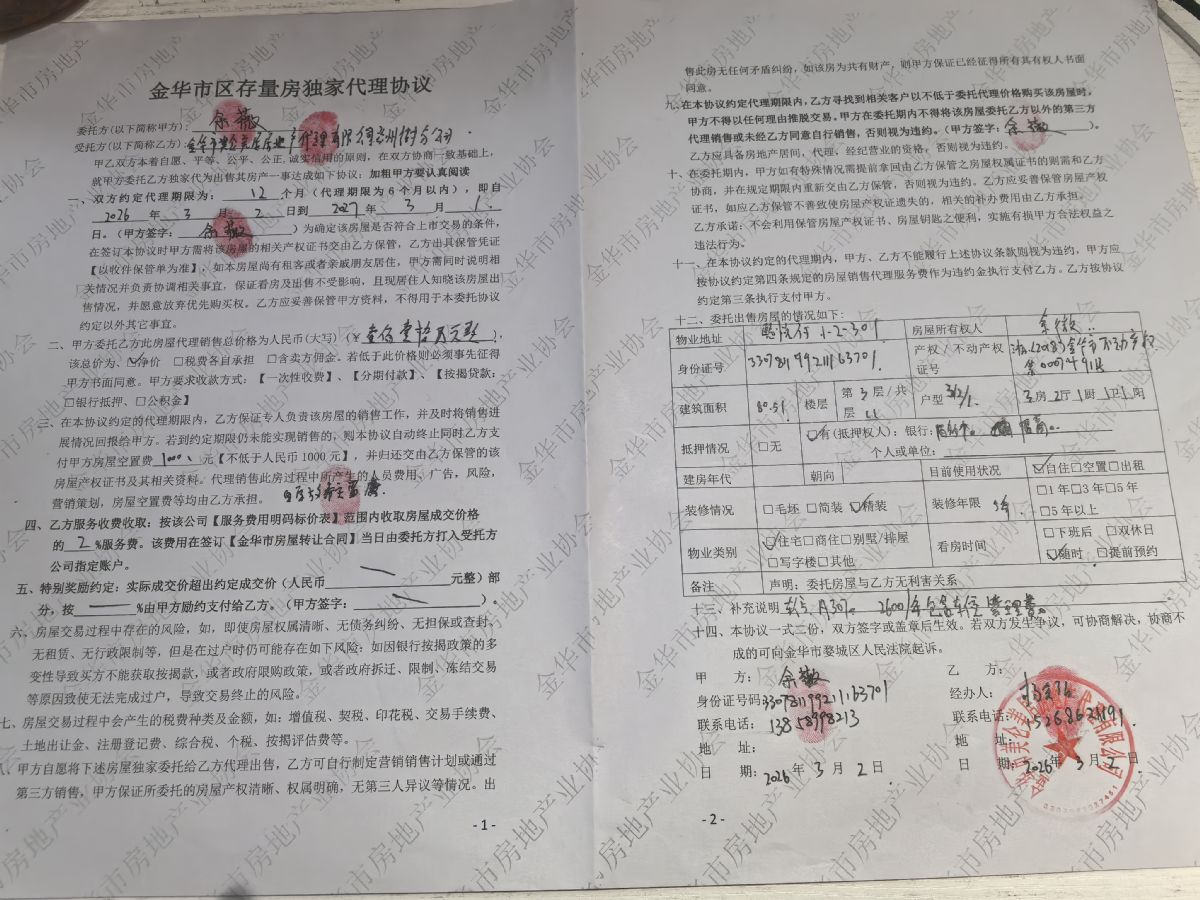 金华市区存量房独家代理协议
委托方(以下简称甲方)：余薇
受托方(以下简称乙方)：
甲乙双方本着自愿、平等、公平、公正,诚实信用的原则，在双方协商一致基础上，
就甲方委托乙方独家代为出售其房产一事达成如下协议：加粗甲方要认真阅读
一、双方约定代理期限为：12个月（代理期限为6个月以内），即自
2026年3月2日到2027年3月1
日。（甲方签字：余薇）为确定该房屋是否符合上市交易的条件，
在签订本协议时甲方需将该房屋的相关产权证书交由乙方保管，乙方出具保管凭证
【以收件保管单为准】，如本房屋尚有租客或者亲戚朋友居住，甲方需同时说明相
关情况并负责协调相关事宜，保证看房及出售不受影响，且现居住人知晓该房屋出
售情况，并愿意放弃优先购买权。乙方应妥善保管甲方资料，不得用于本委托协议
约定以外其它事宜。
二、甲方委托乙方此房屋代理销售总价格为人民币(大写)（￥），
该总价为、☑净价 □税费各自承担 □含卖方佣金。若低于此价格则必须事先征得
甲方书面同意。甲方要求收款方式：【一次性收费】、【分期付款】、【按揭贷款：
□银行抵押、□公积金】
三、在本协议约定的代理期限内，乙方保证专人负责该房屋的销售工作，并及时将销售进
展情况回报给甲方。若到约定期限仍未能实现销售的，则本协议自动终止同时乙方支
付甲方房屋空置费1000元【不低于人民币1000元】，并归还交由乙方保管的该
房屋产权证书及其相关资料。代理销售此房过程中所产生的人员费用、广告，风险，
营销策划，房屋空置费等均由乙方承担。
四、乙方服务收费收取：按该公司【服务费用明码标价表】范围内收取房屋成交价格
的2%服务费。该费用在签订【金华市房屋转让合同】当日由委托方打入受托方
公司指定账户。
五、特别奖励约定：实际成交价超出约定成交价（人民币元整）部
分，按%由甲方励约支付给乙方。（甲方签字：）。
六、房屋交易过程中存在的风险，如，即使房屋权属清晰、无债务纠纷、无担保或查封、
无租赁、无行政限制等，但是在过户时仍可能存在如下风险：如因银行按揭政策的多
变性导致买方不能获取按揭款，或者政府限购政策，或者政府拆迁、限制、冻结交易
等原因致使无法完成过户，导致交易终止的风险。
七、房屋交易过程中会产生的税费种类及金额，如：增值税、契税、印花税、交易手续费、
土地出让金、注册登记费、综合税、个税、按揭评估费等。
、甲方自愿将下述房屋独家委托给乙方代理出售，乙方可自行制定营销销售计划或通过
第三方销售，甲方保证所委托的房屋产权清晰、权属明确，无第三人异议等情况。出
-1-
售此房无任何矛盾纠纷，如该房为共有财产，则甲方保证已经征得所有其有权人书面
同意。
九、在本协议约定代理期限内，乙方寻找到相关客户以不低于委托代理价格购买该房屋时，
甲方不得以任何理由推脱交易。甲方在委托期内不得将该房屋委托乙方以外的第三方
代理销售或未经乙方同意自行销售，否则视为违约。（甲方签字：余薇）。
乙方应具备房地产居间，代理，经纪营业的资格，否则视为违约。
十、在委托期内，甲方如有特殊情况需提前拿回由乙方保管之房屋权属证书的则需和乙方
协商，并在规定期限内重新交由乙方保管，否则视为违约。乙方应妥善保管房屋产权
证书，如应乙方保管不善致使房屋产权证遗失的，相关的补办费用由乙方承担。
乙方承诺：不会利用保管房屋产权证书、房屋钥匙之便利，实施有损甲方合法权益之
违法行为。
十一、在本协议约定的代理期内，甲方、乙方不能履行上述协议条款则视为违约，甲方应
按协议约定第四条规定的房屋销售代理服务费作为违约金执行支付乙方。乙方按协议
约定第三条执行支付甲方。
十二、委托出售房屋的情况如下：
物业地址 1-2-301 房屋所有权人 余薇
身份证号 330781199211163701 产权／不动产权证号
建筑面积 80.51 楼层 第3层/共11层 户型 3房2厅1厨1卫阳
抵押情况 □无 ☑有(抵押权人)：银行：
个人或单位：
建房年代 朝向 目前使用状况 ☑自住□空置□出租
装修情况 □毛坯 □简装 ☑精装 装修年限 □1年□3年□5年
□5年以上
物业类别 ☑住宅□商住□别墅/排屋 □写字楼□其他 看房时间 □下班后 □双休日
☑随时 □提前预约
备注 声明：委托房屋与乙方无利害关系
十三、补充说明 A307 2600/年
十四、本协议一式二份，双方签字或盖章后生效。若双方发生争议，可协商解决，协商不
成的可向金华市婺城区人民法院起诉。
甲 方：余薇 乙 方：
身份证号码330781199211163701 经办人：
联系电话：13858998213 联系电话：15268621191
地 址： 地 址：
日 期：2026年3月2日 日 期：2026年3月2日
-2-